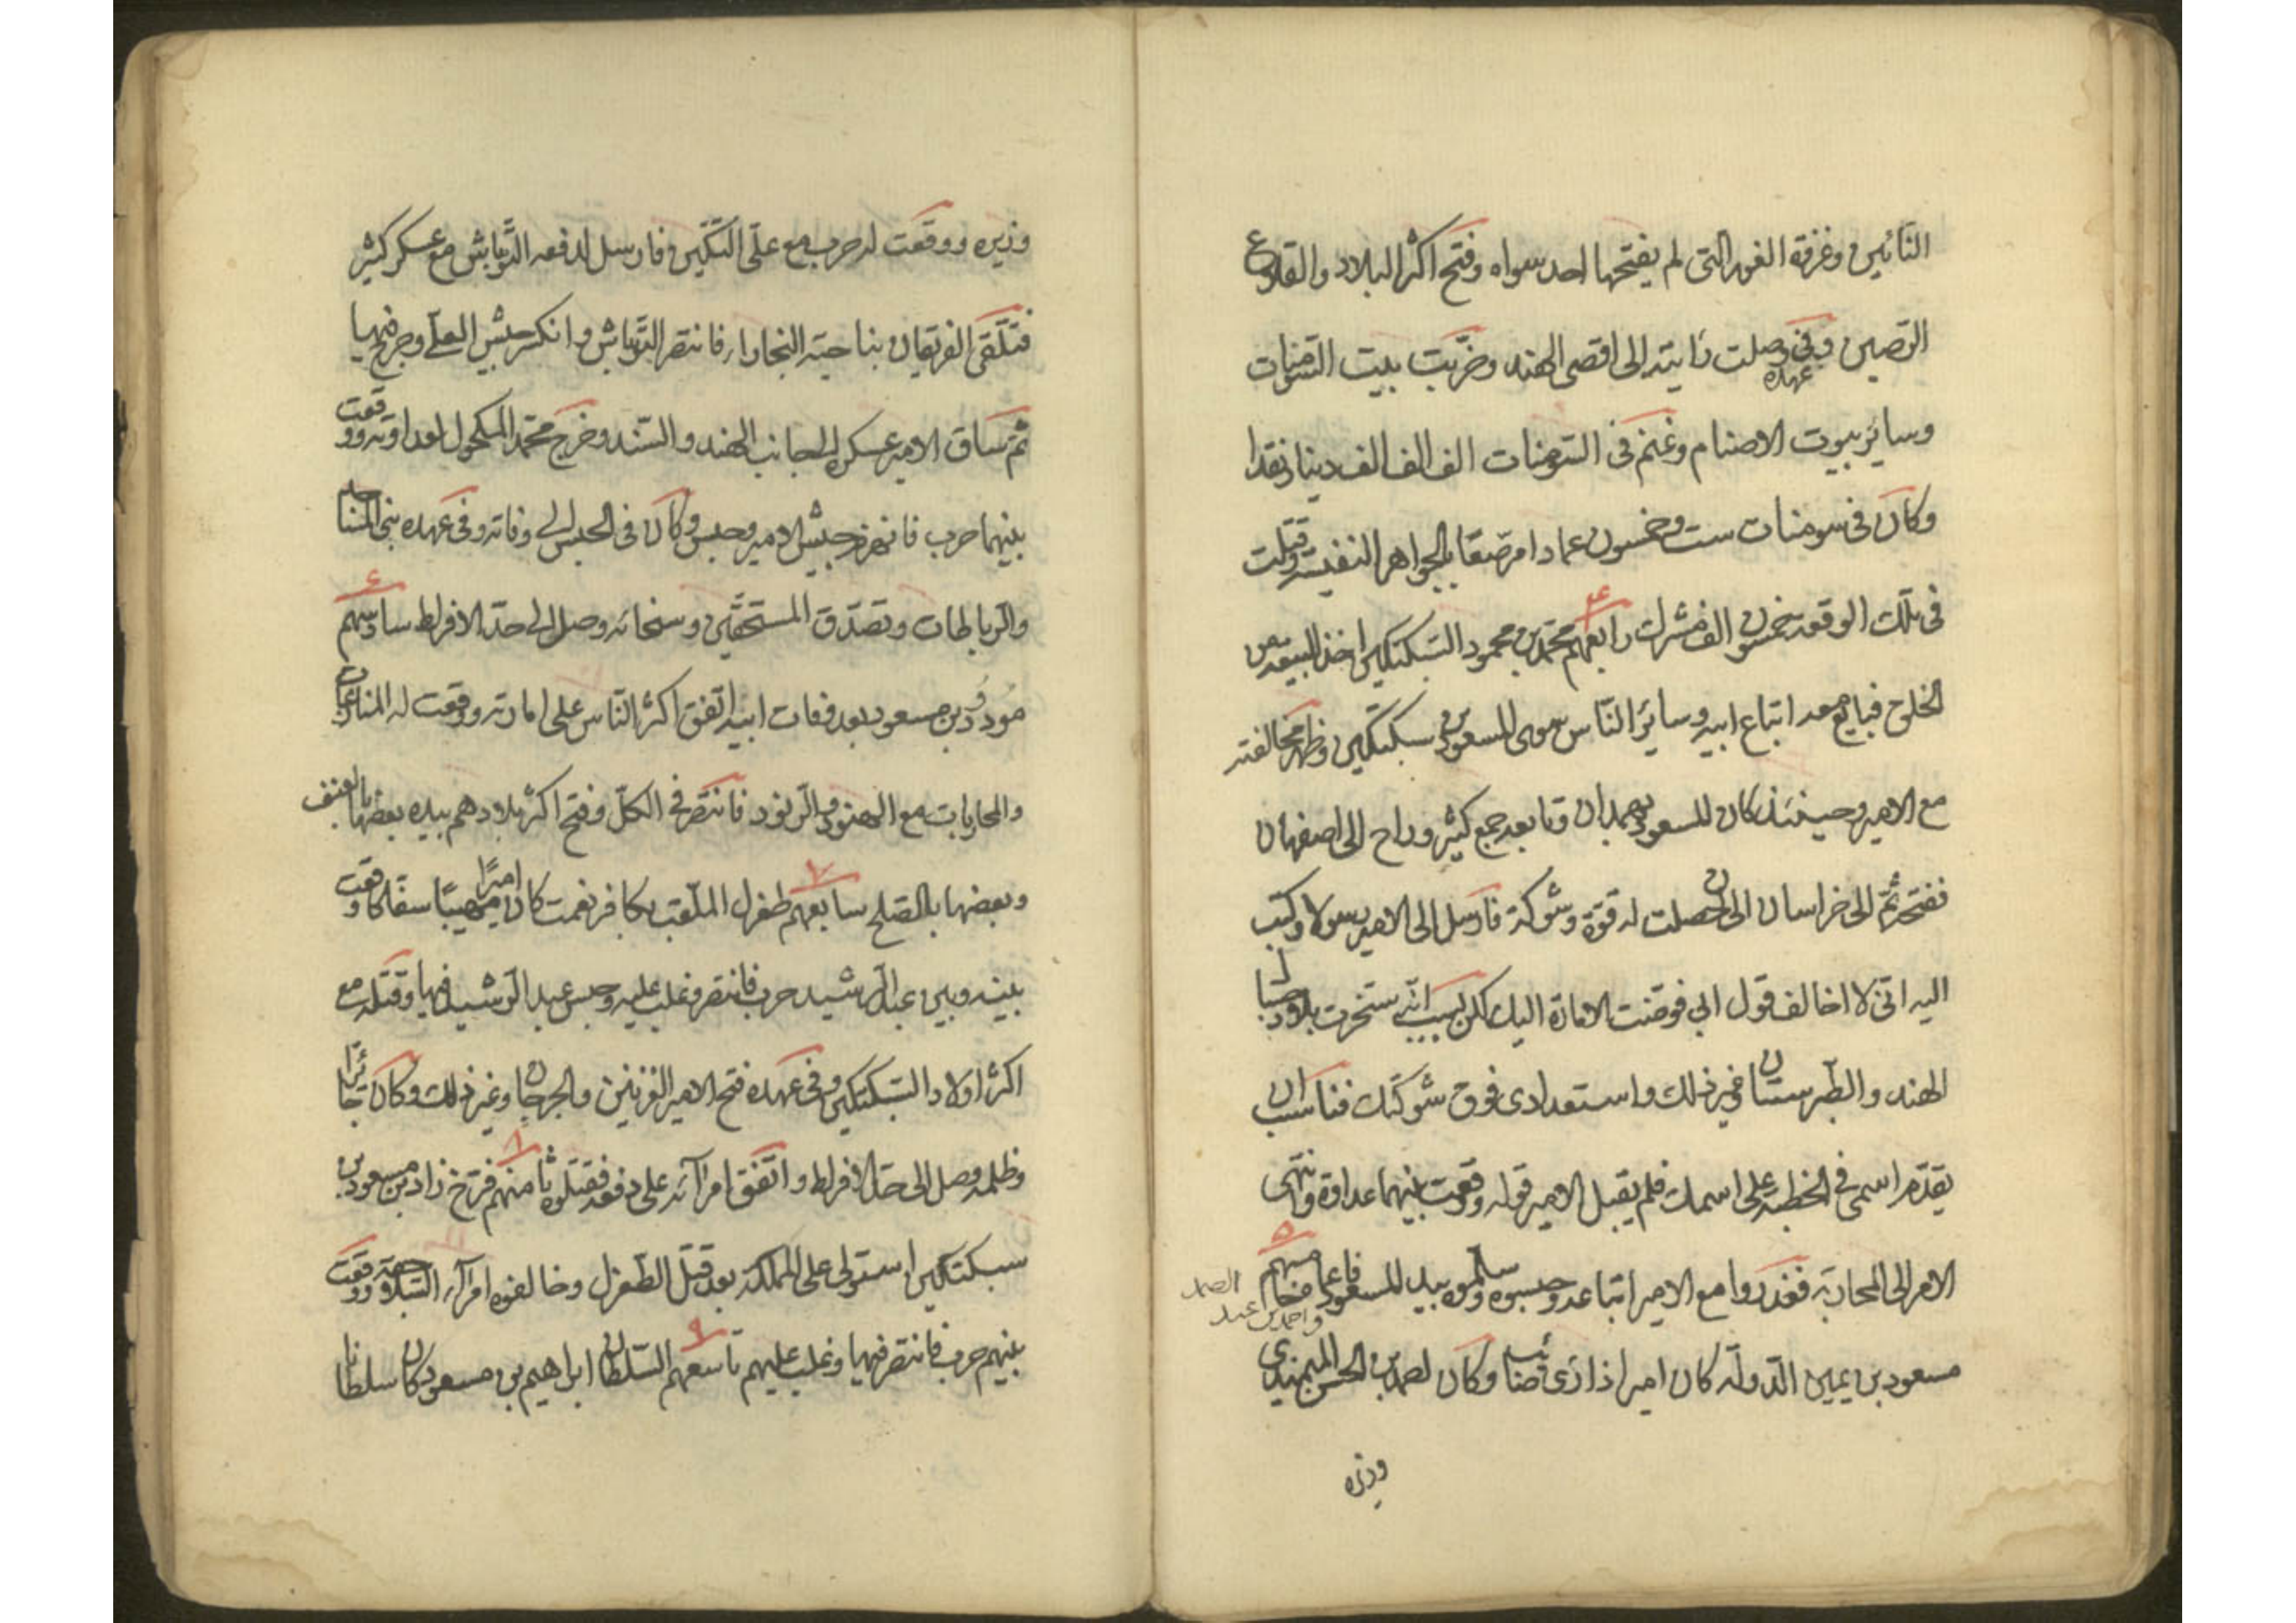 النائين وغزقة الغور التى لم يفتحها احد سواه وفتح اكثر البلاد والقلاع
الرصين وفى عهده وصلت رايته الى اقصى الهند وخرّبت بيت السّومنات
وسائر بيوت الاصنام وغنم فى السّومنات الف الف الف دينار نقدا
وكان فى سومنات ست وخمسون عمادا مرصّعا بالجواهر النفيسة وقتلت
فى تلك الوقعة خمسون الف مشرك رابعهم محمّد بن محمود السّبكتكين اخذ البيعة من
الخلق فبايع معه اتباع ابيه وسائر النّاس سوى المسعود بن سبكتكين وظهر مخالفته
مع الامير وحينئذ كان للمسعود بهمدان وتابعه جمع كثير وراح الى اصفهان
ففتحه ثمّ الى خراسان الى ان حصلت له قوّة وشوكة فارسل الى الامير رسولا وكتب
اليه انّى لا اخالف قول ابي فوّضت الامارة اليك لكن بسبب انّى سخّرت بلاد جبال
الهند والطّبرستان وغير ذلك واستعدادى فوق شوكتك فناسب ان
يقدّم اسمى فى الخطبة على اسمك فلم يقبل الامير قوله ووقعت بينهما عداوة وانتهى
الامر الى المحاربة فغدروا مع الامير اتباعه وحبسوه وسلّموه بيد المسعود فاعماه خامسهم
مسعود بن يمين الدّولة كان اميرا ذا رأى صائب وكان لصمد بن الحسن الميمندى
واحمد بن عبد الصمد
وزيره
وزيره ووقعت له حرب مع على التكين فارسل لدفعه التّونتاش مع عسكر كثير
فتلقّى الفريقان بناحية البخارا فانتصر التّونتاش وانكسر جيش العلى وجرح فيها
ثمّ ساق الامير عسكره الى جانب الهند والسّند وخرج محمّد المكحول لعداوته ووقعت
بينهما حرب فانهزم جيش الامير وحبس وكان فى الحبس الى وفاته وفى عهده بنى المساجد
والرّباطات وتصدّق المستحقّين وسخائه وصل الى حدّ الافراط سادسهم
مودود بن مسعود بعد وفات ابيه اتّفق اكثر النّاس على امارته ووقعت له المنازعات
والمحاربات مع الهنود والرّنود فانتصر فى الكلّ وفتح اكثر بلادهم بيده بعضها بالعنف
وبعضها بالصّلح سابعهم طغرل الملقّب بكافر نعمت كان اميرًا مهيبًا سفّاكا وقعت
بينه وبين عبد الرّشيد حرب فانتصر وغلب عليه وحبس عبد الرّشيد فيها وقتله مع
اكثر اولاد السّبكتكين وفى عهده فتح الامير الغزنين والجرجان وغير ذلك وكان جائرًا
وظلمه وصل الى حدّ الافراط واتّفق امرائه على دفعه فقتلوه ثامنهم فرّخ زاد بن مسعود بن
سبكتكين استولى على المملكة بعد قتل الطّغرل وخالفوه امراء السّلاجقة ووقعت
بينهم حرب فانتصر فيها وغلب عليهم تاسعهم السّلطان ابراهيم بن مسعود كان سلطانا